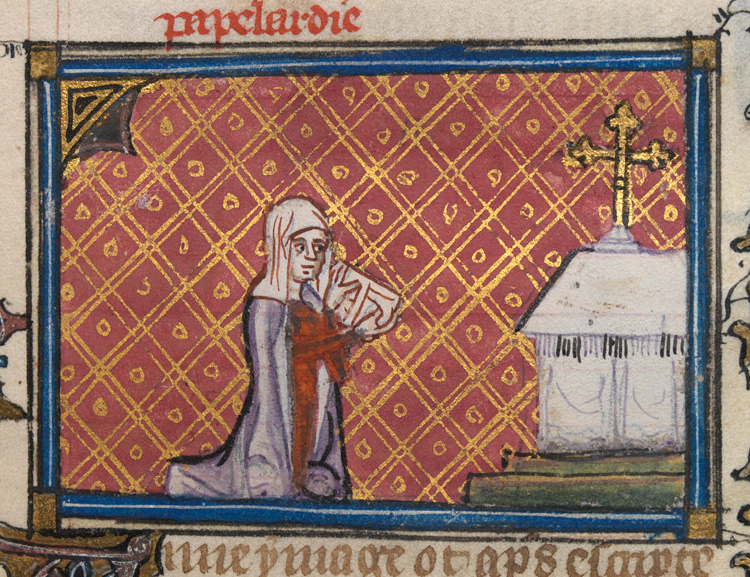 papelardie
ymage ot aps escripte